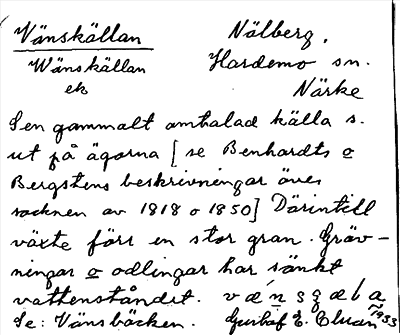 Vänskällan Nälberg,
Wänskällan Hardemo sn.
ek Närke
Sen gammalt omtalad källa s.
ut på ägorna [se Benhardts o
Bergstens beskrivningar över
socknen av 1818 o 1850] Därintill
växte förr en stor gran. Gräv-
ningar o odlingar har sänkt
vattenståndet.
Se: Vänsbäcken. 1933